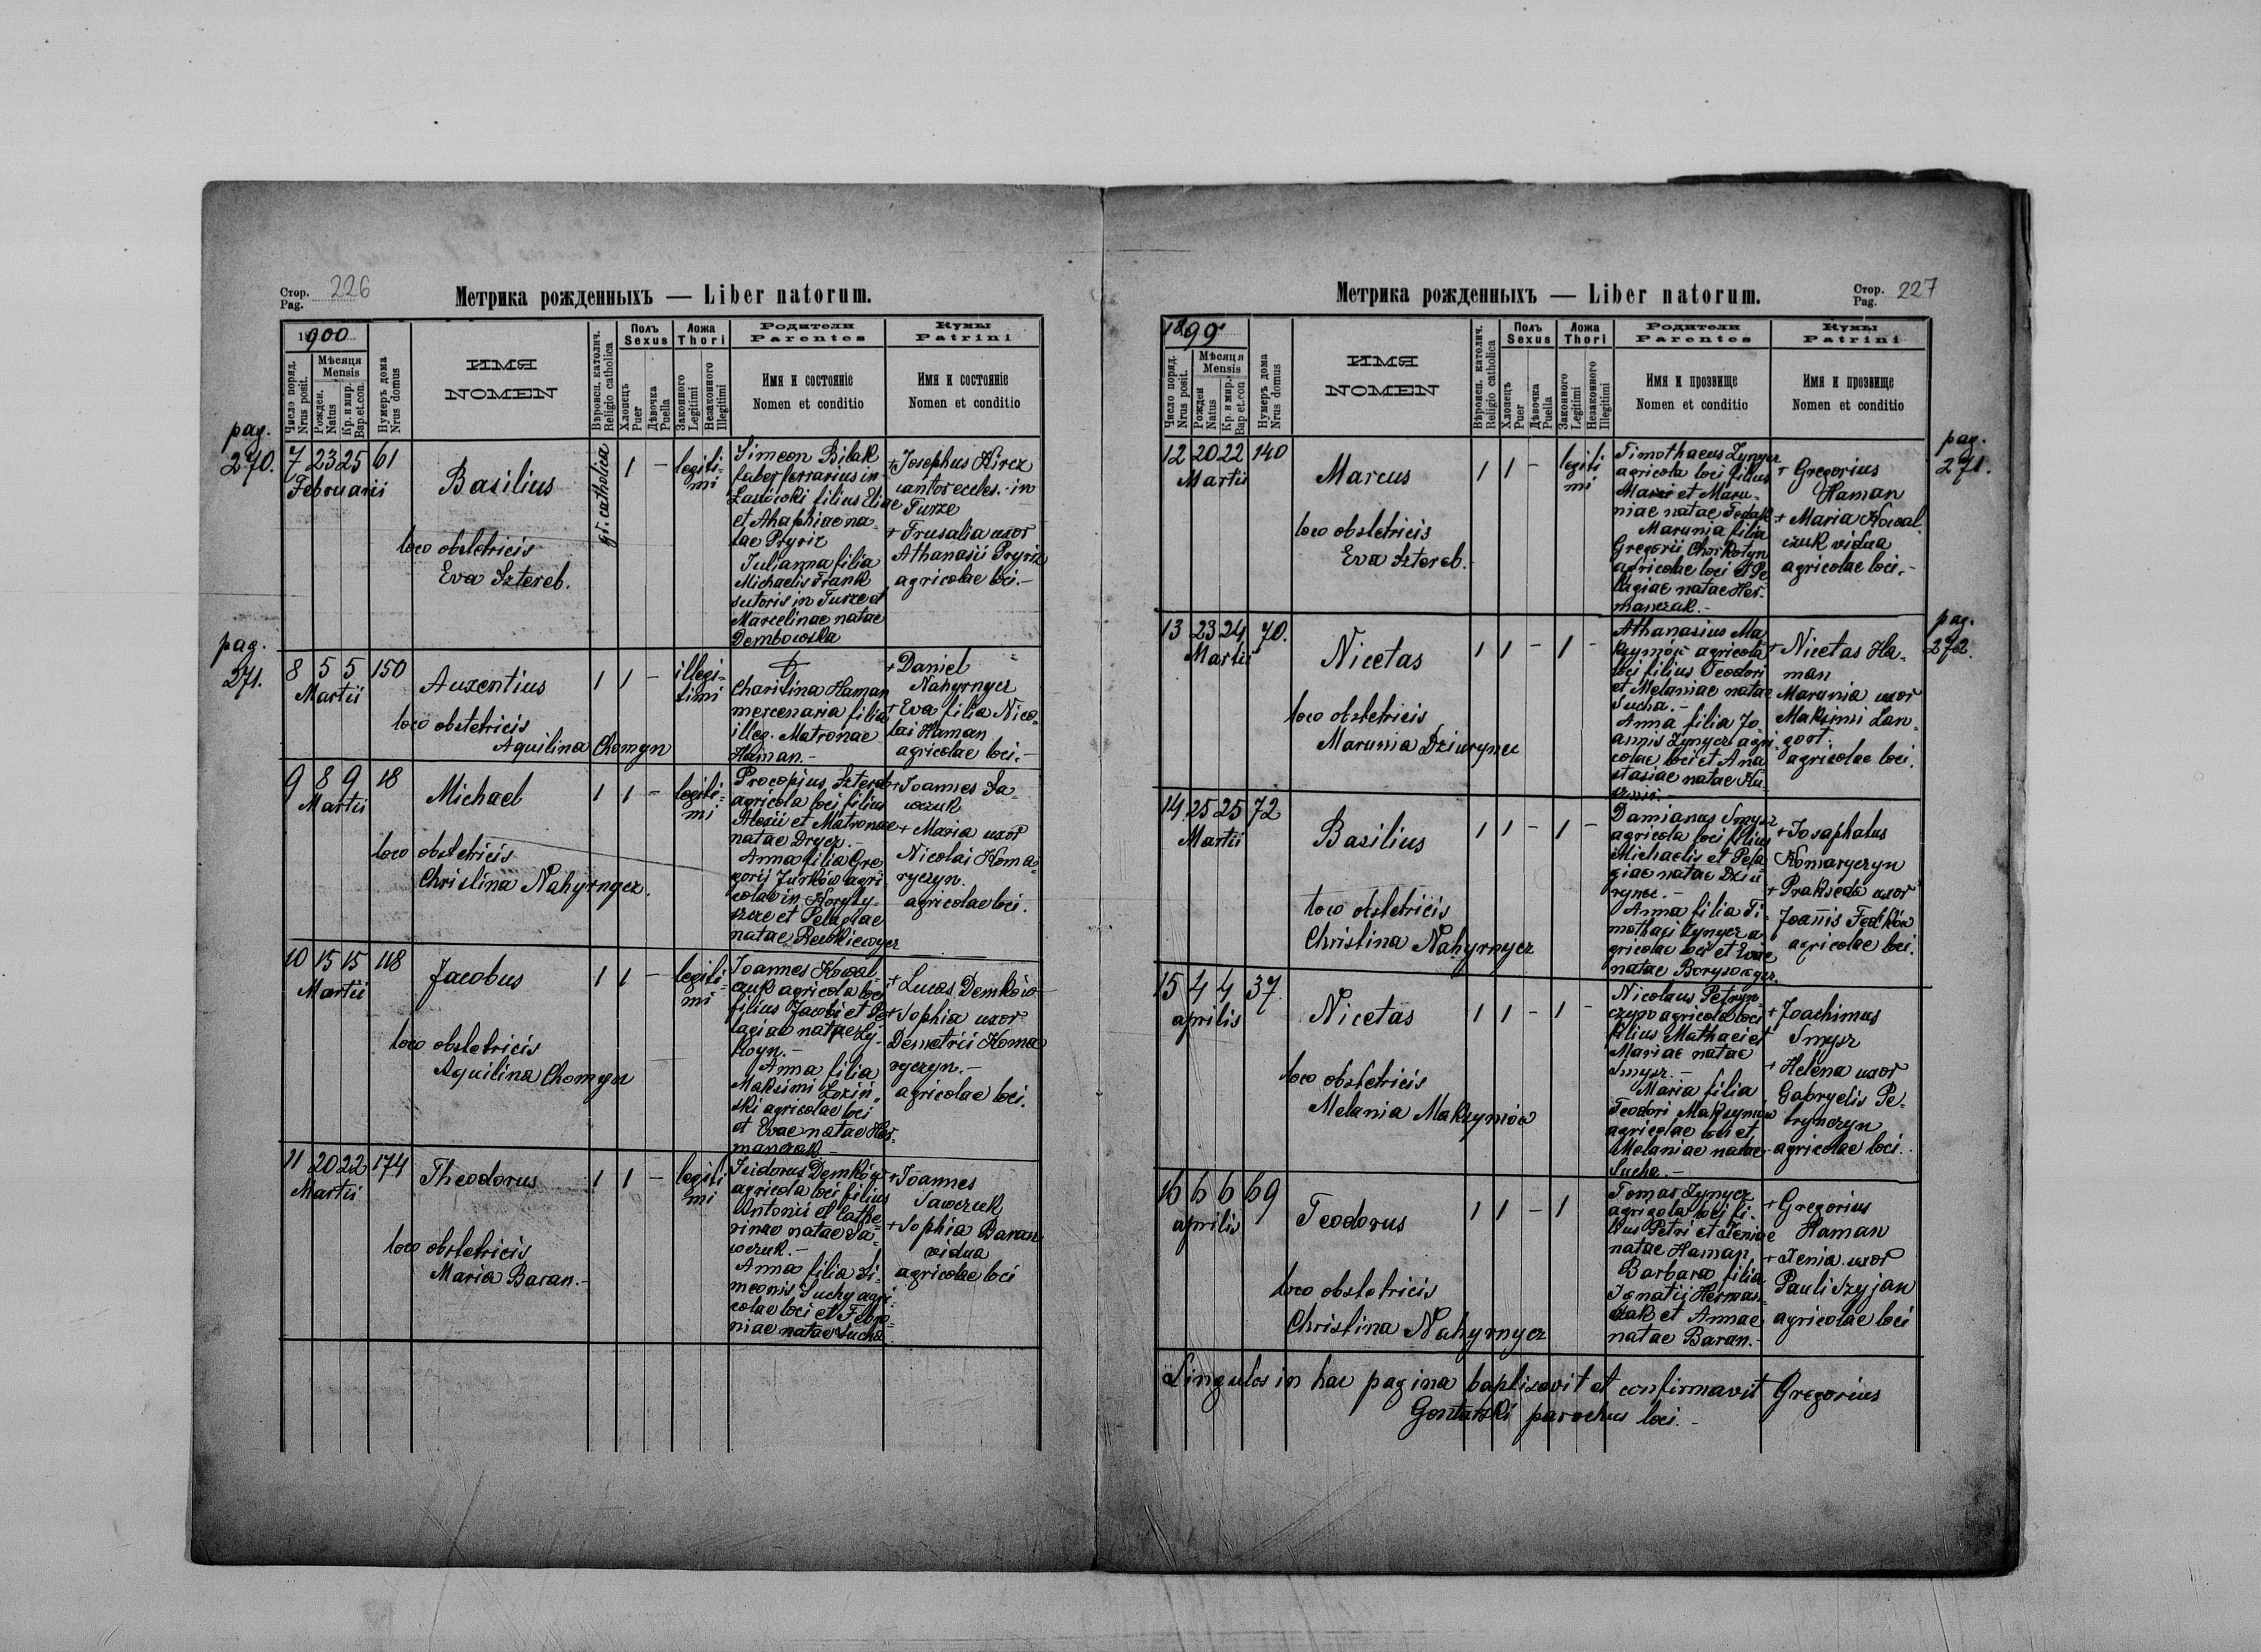 Стор. 226
Pag.
Метрика рожденныхъ — Liber natorum.
1900
Число поряд.
Nrus posit.
Мѣсяця
Mensis
Рожден.
Natus
Кр. и мир.
Bap. et. con.
Нумеръ дома
Nrus domus
ИМЯ
NOMEN
Вѣроисп. католич.
Religio catholica
Полъ
Sexus
Хлопецъ
Puer
Дѣвочка
Puella
Ложа
Thori
Законного
Legitimi
Незаконного
Illegitimi
Родители
Parentes
Имя и состоянiе
Nomen et conditio
Кумы
Patrini
Имя и состоянiе
Nomen et conditio
pag.
270.
7 23 25 61
Februarii
Basilius
loco obstetricis
Eva Sztereb.
gr. catholica
1 —
legiti-
mi
Simeon Bilak
faber ferrarius in
filius Eliae
et Ahaphiae na-
tae Pryriz
Julianna filia
Michaelis Frank
sutoris in Turze et
Marcelinae natae
Dembowska
+ Josephus Hircz
cantor eccles. in
Turze
+ Frusalia uxor
Athanasii Pryriz
agricolae loci.-
pag.
271.
8 5 5 150
Martii
Auxentius
loco obstetricis
Aquilina Chomyn
1 1 —
illegi-
timi
Charitina Haman
mercenaria filia
illeg. Matronae
Haman.-
+ Daniel
Nahyrnycz
+ Eva filia Nico-
lai Haman
agricolae loci.-
9 8 9 18
Martii
Michael
loco obstetricis
Christina Nahyrnycz.
1 1 —
legiti-
mi
Procopius Sztereb
agricola loci filius
Alexii et Matronae
natae Drycz.-
Anna filia Gre
gorii Jurków agri
colae in
et Pelagiae
natae
+ Joannes Sa-
wczuk
+ Maria uxor
Nicolai Koma-
ryczyn.
agricolae loci.
10 15 15 118
Martii
Jacobus
loco obstetricis
Aquilina Chomyn
1 1 —
legiti-
mi
Joannes Kowal-
czuk agricola loci
filius Jacobi et Pe
lagiae natae Ły-
koyn.-
Anna filia
Maksimi Łoziń-
ski agricolae loci
et Evae natae Her-
manczak -
+ Lucas Demków
+ Sophia uxor
Demetrii Koma
ryczyn.-
agricolae loci.
11 20 22 174
Martii
Theodorus
loco obstetricis
Maria Baran.-
1 1 —
legiti
mi
Isidorus Demków
agricola loci filius
Antonii et Cathe-
rinae natae Sa-
wczuk.-
Anna filia Si-
meonis Suchy agri-
colae loci et Febro-
niae natae Sucha
+ Joannes
Sawczuk
+ Sophia Baran
vidua
agricolae loci
Метрика рожденныхъ — Liber natorum.
Стор. 227
Pag.
1899
Число поряд.
Nrus posit.
Мѣсяця
Mensis
Рожден
Natus
Кр. и мир.
Bap et.con
Нумеръ дома
Nrus domus
ИМЯ
NOMEN
Вѣроисп. католич.
Religio catholica
Полъ
Sexus
Хлопецъ
Puer
Дѣвочка
Puella
Ложа
Thori
Законного
Legitimi
Незаконного
Illegitimi
Родители
Parentes
Имя и прозвище
Nomen et conditio
Кумы
Patrini
Имя и прозвище
Nomen et conditio
12 20 22 140
Martii
Marcus
loco obstetricis
Eva Sztereb.
1 1 —
legiti
mi
Timothaeus Zynycz
agricola loci filius
et Maru-
niae natae Fedak
Marunia filia
Gregorii Chorkotyn
agricolae loci et Pe
lagiae natae Her-
manczak.-
+ Gregorius
Haman
+ Maria Kowal
czuk vidua
agricolae loci.-
pag.
271.
13 23 24 70.
Martii
Nicetas
loco obstetricis
Marunia Dziurynec
1 1 — 1 —
Athanasius Ma
kzymów agricola
loci filius Teodori
et Melaniae natae
Sucha.-
Anna filia Jo-
annis Zynycz agri-
colae loci et Ana
stasiae natae
+ Nicetas Ha-
man
Marunia uxor
Maksimi Lan-
gort.
agricolae loci.
pag.
272.
14 25 25 72
Martii
Basilius
loco obstetricis
Christina Nahyrnycz
1 1 — 1 —
Damianus Smysz
agricola loci filius
Michaelis et Pela
giae natae Dziu-
rynec.-
Anna filia Ti-
mothaei Zynycz a-
gricolae loci et Evae
natae Borysowycz.
+ Josaphatus
Komaryczyn
+ Prakseda uxor
Joannis Fedków
agricolae loci.
15 4 4 37.
aprilis
Nicetas
loco obstetricis
Melania Makzymów
1 1 — 1 —
Nicolaus Petryn-
czyn agricola loci
filius Mathaei et
Mariae natae
Smysz.-
Maria filia
Teodori Makzymów
agricolae loci et
Melaniae natae
Sucha.-
+ Joachimus
Smysz
+ Helena uxor
Gabryelis Pe-
trynczyn
agricolae loci.
16 6 6 69
aprilis
Teodorus
loco obstetricis
Christina Nahyrnycz
1 1 — 1
Tomas Zynycz
agricola loci fi-
lius Petri et Xeniae
natae Haman,
Barbara filia
Ignatii Herman-
czak et Annae
natae Baran.-
+ Gregorius
Haman
+ Xenia uxor
Pauli Szyjan
agricolae loci
Singulos in hac pagina baptisavit et confirmavit Gregorius
Gontarski parochus loci.-